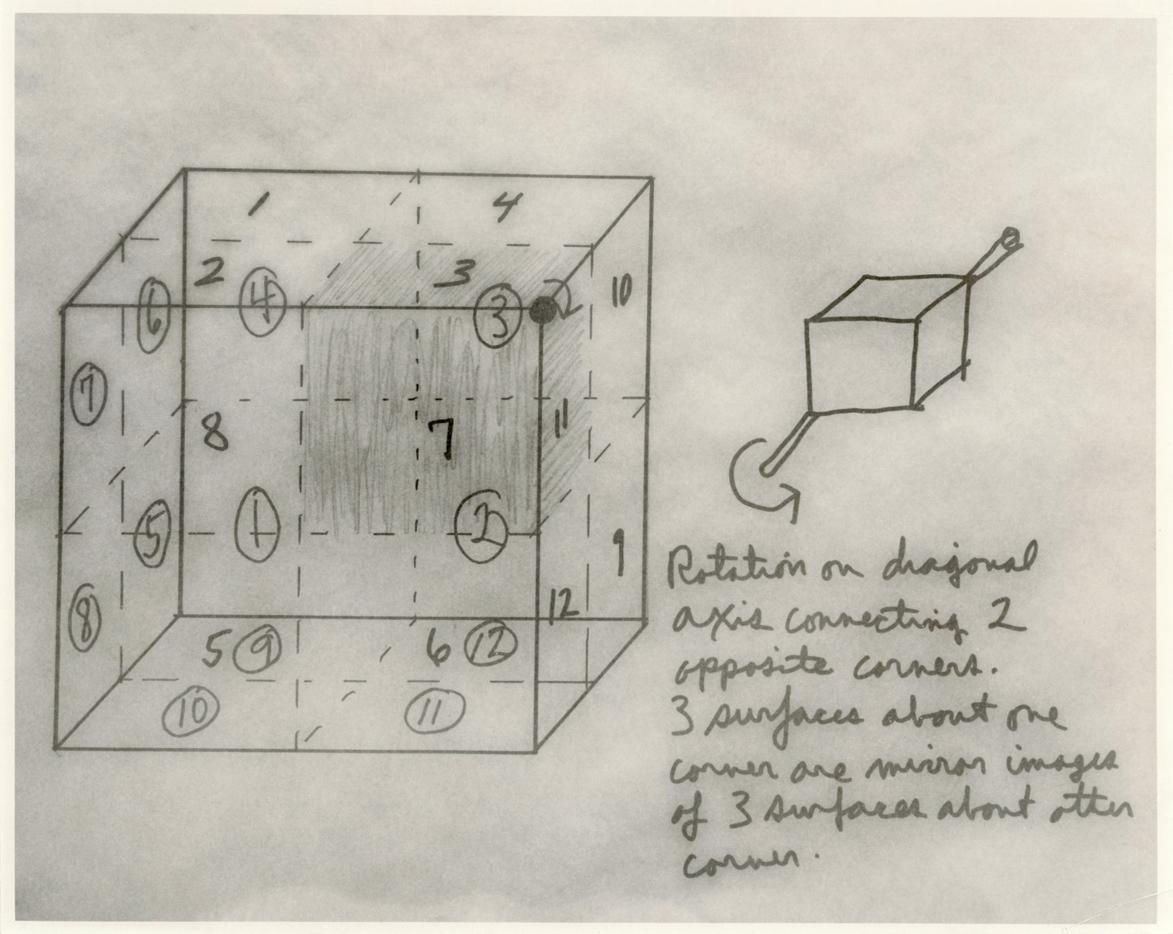 1 4
2 3 10
⑥ ④ ③
⑦
8 7 11
⑤ ① ② 9
⑧ 12
5 ⑨ 6 ⑫
⑩ ⑪
Rotation on diagonal
axis connecting 2
opposite corners.
3 surfaces about one
corner are mirror images
of 3 surfaces about other
corner.